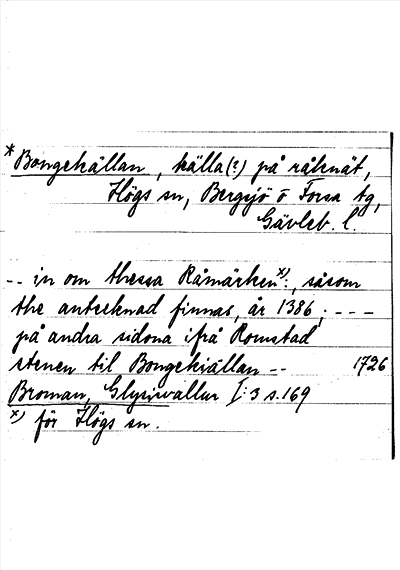 *Bongekällan, källa(?) på råknät,
Högs sn, Bergsjö o Forsa tg,
Gävleb. l.
-- in om thessa Råmärken x): såsom
the antecknad finnas, år 1386; ---
på andra sidona ifrå Romstad
stenen til Bongekiällan -- 1726
Broman, Glysisvallur I:3 s.169
x) för Högs sn.